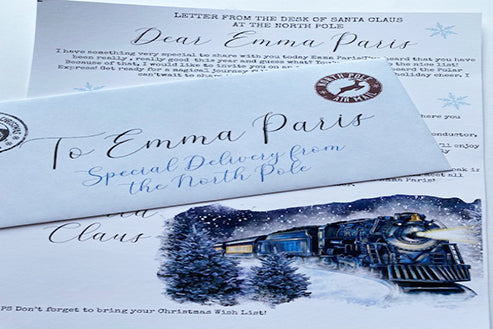 LETTER FROM THE DESK OF SANTA CLAUS
AT THE NORTH POLE
Dear Emma Paris
I have something very special to share with you today Emma Paris! heard that you have
been really, really good this year and guess what? You the nice list!
Because of that, I would like to invite you on a board the Polar
Express! Get ready for a magical journey fi holiday cheer. I
can't wait to share
NORTH POLE
AIR MAIL
CHRISTMAS
To Emma Paris
Special Delivery from
the North Pole
here you
onductor,
ll enjoy
is
Emma Paris!
Claus
PS Don't forget to bring your Christmas Wish List!